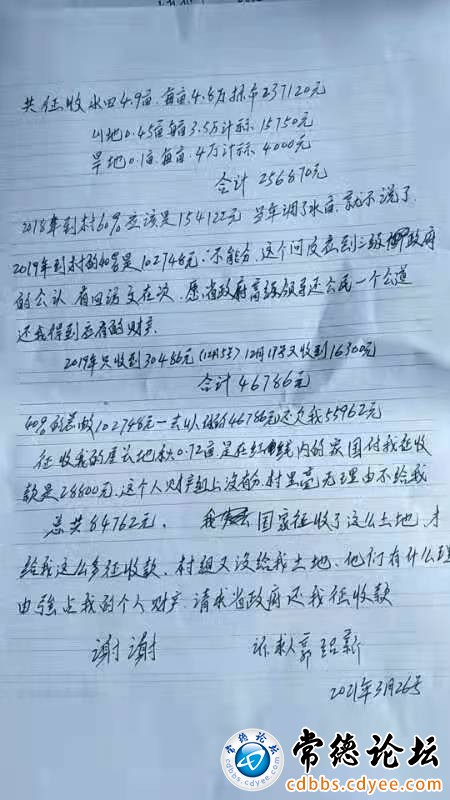 共征收水田4.9亩.每亩.4.8万 237120元
山地0.45亩每亩3.5万计标 15750元
旱地0.1亩.每亩.4万计标 4000元
合计 256870元
2018年到村60%应该是154122元 当年调了水亩.就不说了.
2019年到村的40%是102748元.不能分.这个问反应到三级政府
的公认 有回 文在次.愿省政府高级领导还公民一个公道
还我得到应有的财产.
2019年只收到30486元(12月5号)12月17号又收到16300元
合计46786元
40%的总数102748元一去 46786元还欠我55962元
征收我的屋 地 0.72亩.是在红线内的.国付我征收
款是28800元.这个人财产组上没有分.村里毫无理由不给我
总共84762元. 我 国家征收了这么土地.才
给我这么多征收款.村组又没给我土地.他们有什么理
由强占我的个人财产.请求省政府还我征收款
谢谢 诉求人郭 新
2021年3月26号
常德论坛
cdbbs.cdyee.com